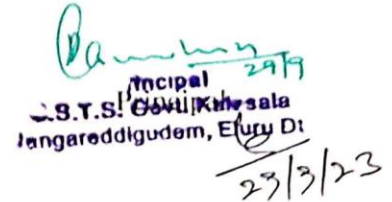 29/9
Principal
S.T.S. Govt. Kalasala
Jangareddigudem, Eluru Dt
23/3/23